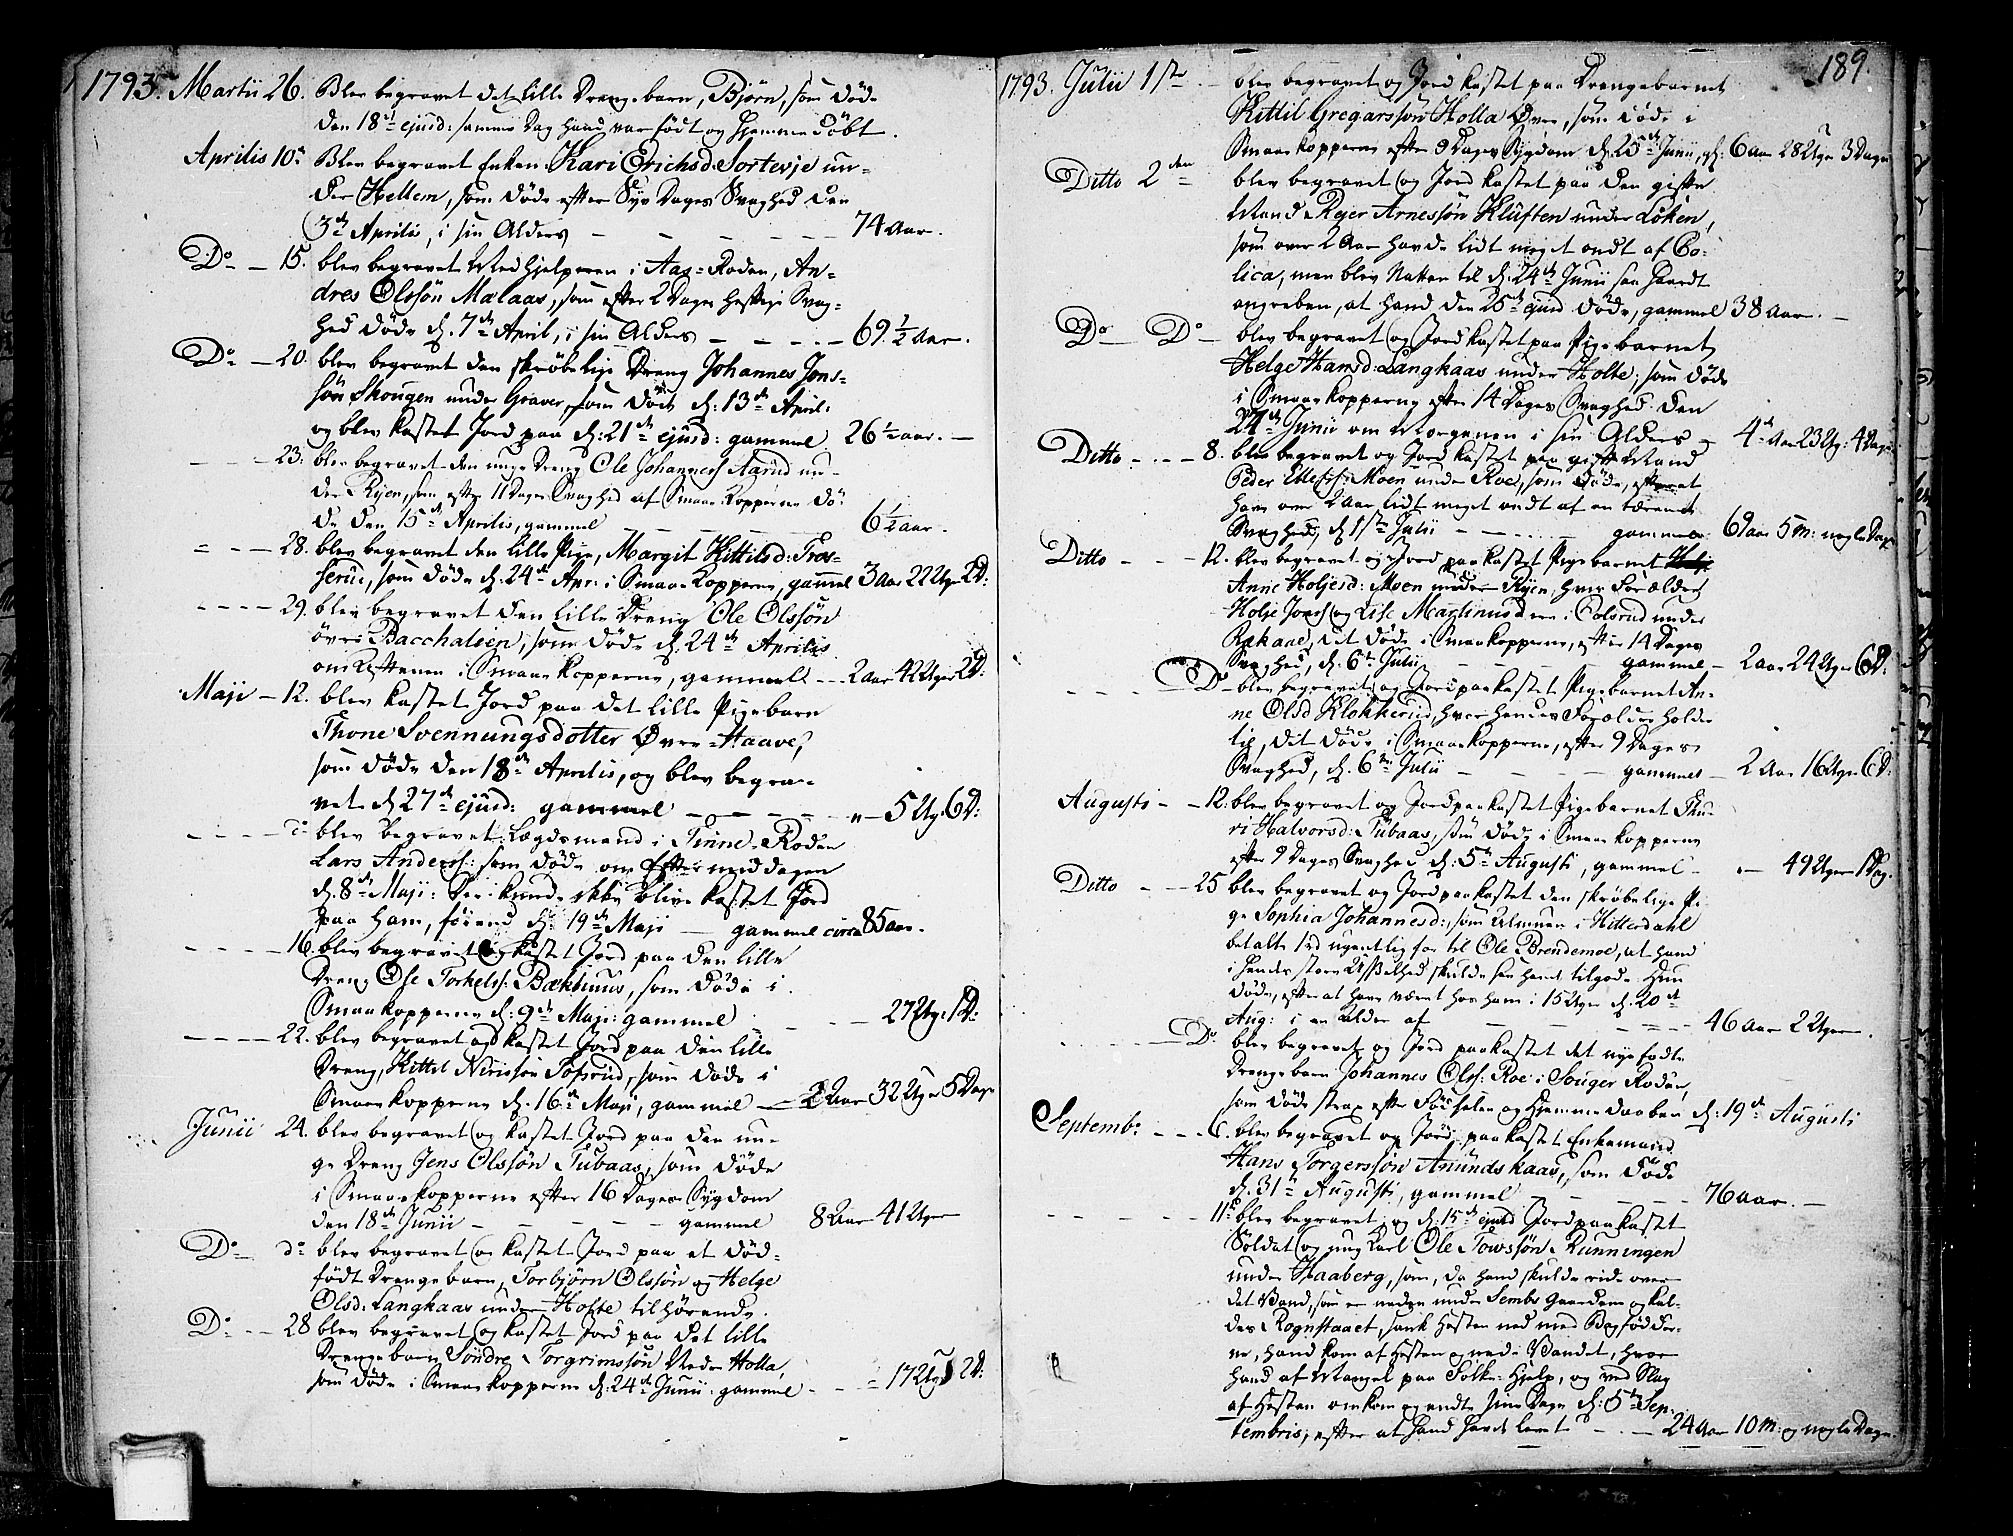 1793. Martii 26. Blev begravet det lille Drengebarn, Bjørn, som døde
den 18de ejusd: samme Dag hand var født og hjemmedöbt.
Aprilis 10de Blev begravet Enken Kari Erichsd: Sortevje un-
der Hellem, som døde efter Syv Dages Svaghed den
3de Aprilis, i sin Alders — — — 74 Aar.
Do — 15. blev begravet Medhjelperen i Aas-Roden, An-
dres Olssön Mælaas, som efter 2 Dages heftige Svag-
hed døde d. 7de April, i sin Alders — — — 69 1/2 Aar.
Do — 20. blev begravet den skrøbelige Dreng Johannes Jons-
sön Skougen under Graver, som döde d: 13de April:
og blev kastet Jord paa d: 21de ejusd: gammel 26 1/2 aar. —
— — — 23. blev begravet den unge Dreng Ole Johanness Aarud un-
der Rijen, som efter 11 Dages Svaghed af Smaae Kopperne dö-
de den 15de Aprilis, gammel — — — 6 1/2 aar.
— — — 28. blev begravet den lille Pige, Margit Kittilsd: Tros-
serud, som døde d. 24de Apr: i Smaae Kopperne, gammel 3 Aar 22 Uger 2 D:
— — — 29. blev begravet den lille Dreng Ole Olssön
övre Bacchalien, som døde d. 24de Aprilis
om Aftenen i Smaaekopperne, gammel — 2 aar 42 Uger 2 D:
Maji — 12. blev kastet Jord paa det lille Pigebarn
Thone Svennungsdotter Øvre-Haave,
som døde den 18de Aprilis, og blev begra-
vet d. 27de ejusd: gammel — — — 5 Ug: 6 D:
— — — do blev begravet Lægdsmand i Tinne-Roden
Lars Anderss: som døde om Eftermiddagen
d. 8de Maji: der kunde ikke blive kastet Jord
paa ham, förend d: 19de Maji — gammel circa 85 aar.
— — — 16. blev begravet og kastet Jord paa den lille
Dreng Ole Torkelss: Bækhuus, som døde i
Smaaekopperne d: 9de Maji: gammel — — 27 Ug: 1 D:
— — — 22. blev begravet og kastet Jord paa den lille
Dreng, Kittel Nirissön Tofsrud, som døde i
Smaaekopperne d. 16de Maji, gammel — 2 Aar 32 Uger 5 Dage
Junii 24. blev begravet og kastet Jord paa den un-
ge Dreng Jens Olssön Tubaas, som døde
i Smaaekopperne efter 16 Dages Sygdom
den 18de Junii — — — gammel 8 Aar 41 Uger
Do — do blev begravet og kastet Jord paa et död-
födt Drengebarn, Torbjörn Olssön og Helge
Olsd: Langkaas under Holte tilhørende.
Do — 28 blev begravet og kastet Jord paa det lille
Drengebarn Söndre Torgrimssön Nedre Holla,
som døde i Smaaekopperne d: 24de Junii: gammel — — 17 Ug: 2 D:
189.
1793. Julii 1ste — blev begravet og Jord kastet paa Drengebarnet
Kittil Gregarssön Holla Øvre, som døde i
Smaaekopperne efter 9 Dages Sygdom d. 25de Junii, gl: 6 aar 28 Uger 3 Dage
Ditto 2den blev begravet og Jord kastet paa den gifte
Mand Rejer Arnessön Klüften under Löken,
som over 2 Aar havde lidt meget ondt af Co-
lica, men blev Natten til d. 24de Junii saa haardt
angreben, at hand den 25de ejusd døde, gammel 38 aar. —
Do — Do — blev begravet og Jord kastet paa Pigebarnet
Helge Hansd: Langkaas under Holte, som døde
i Smaaekopperne efter 14 Dages Svaghed den
24de Junii om Morgenen i sin Alders 4de Aar 23 Ug: 4 Dage
Ditto — — 8. blev begravet og Jord kastet paa gifte Mand
Peder Ellefss: Moen under Roe, som døde, efter at
have over 2 aar lidt meget ondt af en tærende
Svaghed, d. 1ste Julii — — — gammel 69 aar 5 m: nogle Dage
Ditto — — 12. blev begravet og Jord paakastet Pigebarnet
Anne Holjesd: Moen under Rijen, hvis Forældre
Holje Jonss og Lise Martinusd ere i Colsrud under
Bækane, det døde i Smaaekopperne, efter 14 Dages
Svaghed, d. 6te Julii — — — gammel — 2 aar 24 Uger 6 D:
— — — Do — blev begravet og Jord paakastet Pigebarnet An-
ne Olsd Klokkerud, hvor hendes Forældre holde
til, det döde i Smaaekopperne, efter 9 Dages
Svaghed, d. 6te Julii — — — gammel — 2 Aar 16 Uger 6 D:
Augusti — — 12. blev begravet og Jord paakastet Pigebarnet Thu-
ri Halvorsd: Tubaas, som døde i Smaaekopperne
efter 9 Dages Svaghed d: 5te Augusti, gammel — 49 Uger 1 Dag.
Ditto — — 25 blev begravet og Jord paakastet den skrøbelige Pi-
ge Sophia Johannesd:, som Almuen i Hitterdahl
betalte 1 rd ugentlig for til Ole Brendemoe, at hand
i hendes store Usselhed skulde see hende tilgode. Hun
døde, efter at have været hos ham i 15 Uger d. 20de
Aug: i en Alder af — — — 46 Aar 2 Uger.
— — — Do blev begravet og Jord paakastet det nyefødte
Drengebarn Johannes Olss: Roe i Souger Roden,
som døde strax efter Födselen og Hjemmedaaben d: 19de Augusti
Septembr: — — 6. blev begravet og Jord paakastet Enkemand
Hans Torgerssön Anundskaas, som døde
d. 31te Augusti, gammel — — — 76 aar. —
— — — 11te blev begravet, og d: 15de ejusd Jord paakastet
Soldat og ung Karl Ole Tovssön Runningen
under Haaberg, som, da hand skulde ride over
det Vand, som er neden under Sembs Gaardene og kal-
des Rognstaaet, sank Hesten ned med Bagfødder-
ne, hand kom af Hesten og ned i Vandet, hvor
hand af Mangel paa Folke-Hjelp, og ved Slag
af Hesten omkom og endte sine Dage d: 5te Sep-
tembris, efter at hand havde levet — — 24 Aar 10 m: og nogle Dage.